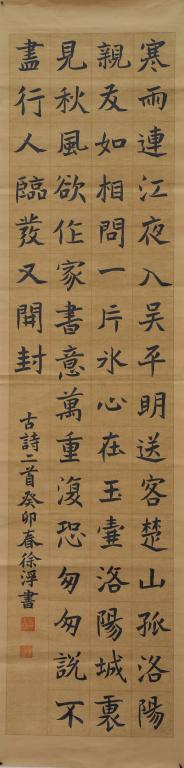 寒雨連江夜入吴平明送客楚山孤洛陽
親友如相問一片氷心在玉壷洛陽城裏
見秋風欲作家書意萬重復恐匆匆說不
盡行人臨發又開封
古詩二首癸卯春徐浮書